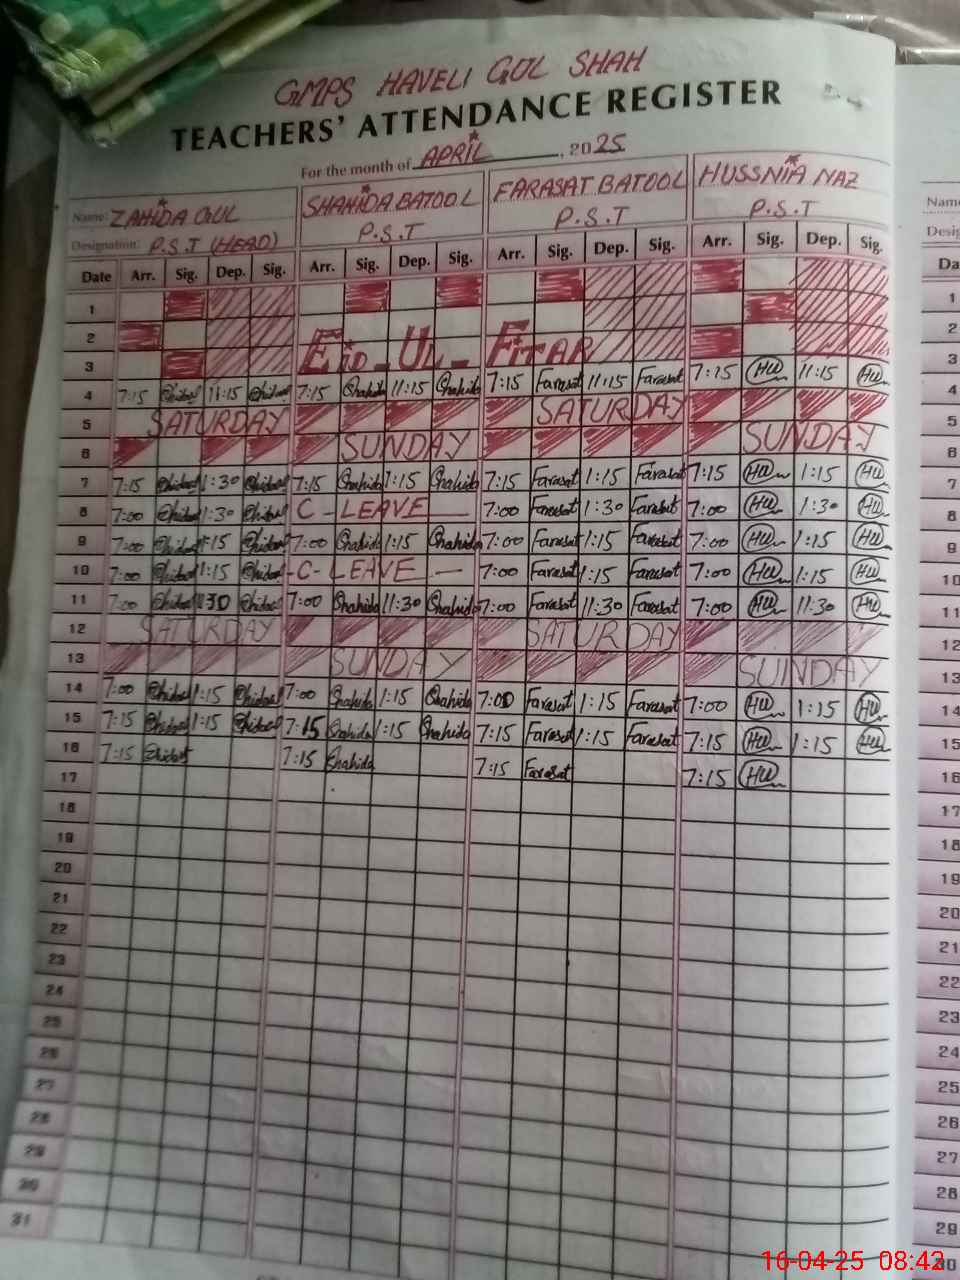 GMPS HAVELI GUL SHAH
TEACHERS' ATTENDANCE REGISTER
For the month of APRIL, 2025
Name: ZAHIDA GUL SHAHIDA BATOOL FARASAT BATOOL HUSSNIA NAZ
Designation: P.S.T (HEAD) P.S.T P.S.T P.S.T
Date Arr. Sig. Dep. Sig. Arr. Sig. Dep. Sig. Arr. Sig. Dep. Sig. Arr. Sig. Dep. Sig.
1
2
3 EID_UL_FITAR
4 7:15 11:15 7:15 Shahida 11:15 Shahida 7:15 Farasat 11:15 Farasat 7:15 HU 11:15 HU
5 SATURDAY SATURDAY
6 SUNDAY SUNDAY
7 7:15 1:30 7:15 Shahida 1:15 Shahida 7:15 Farasat 1:15 Farasat 7:15 HU 1:15 HU
8 7:00 1:30 C-LEAVE 7:00 Farasat 1:30 Farasat 7:00 HU 1:30 HU
9 7:00 1:15 7:00 Shahida 1:15 Shahida 7:00 Farasat 1:15 Farasat 7:00 HU 1:15 HU
10 7:00 1:15 -C-LEAVE- 7:00 Farasat 1:15 Farasat 7:00 HU 1:15 HU
11 7:00 11:30 7:00 Shahida 11:30 Shahida 7:00 Farasat 11:30 Farasat 7:00 HU 11:30 HU
12 SATURDAY SATURDAY
13 SUNDAY SUNDAY
14 7:00 1:15 7:00 Shahida 1:15 Shahida 7:00 Farasat 1:15 Farasat 7:00 HU 1:15 HU
15 7:15 1:15 7:15 Shahida 1:15 Shahida 7:15 Farasat 1:15 Farasat 7:15 HU 1:15 HU
16 7:15 7:15 Shahida 7:15 Farasat 7:15 HU
17
18
19
20
21
22
23
24
25
26
27
28
29
30
31
Name
Desig
Da
1
2
3
4
5
6
7
8
9
10
11
12
13
14
15
16
17
18
19
20
21
22
23
24
25
26
27
28
29
30
16-04-25 08:42